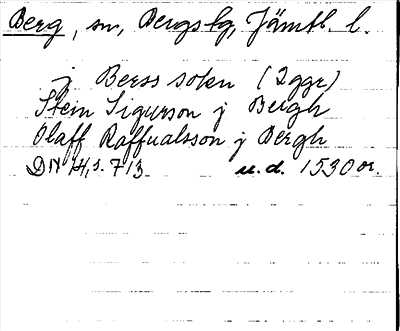 Berg, sn, Bergs tg, Jämtl. l.
j Berss sokn (2 ggr)
Stein Sigurson j Bergh
Olaff Raffualsson j Bergh
DN 14, s. 713 u.d. 1530 or.